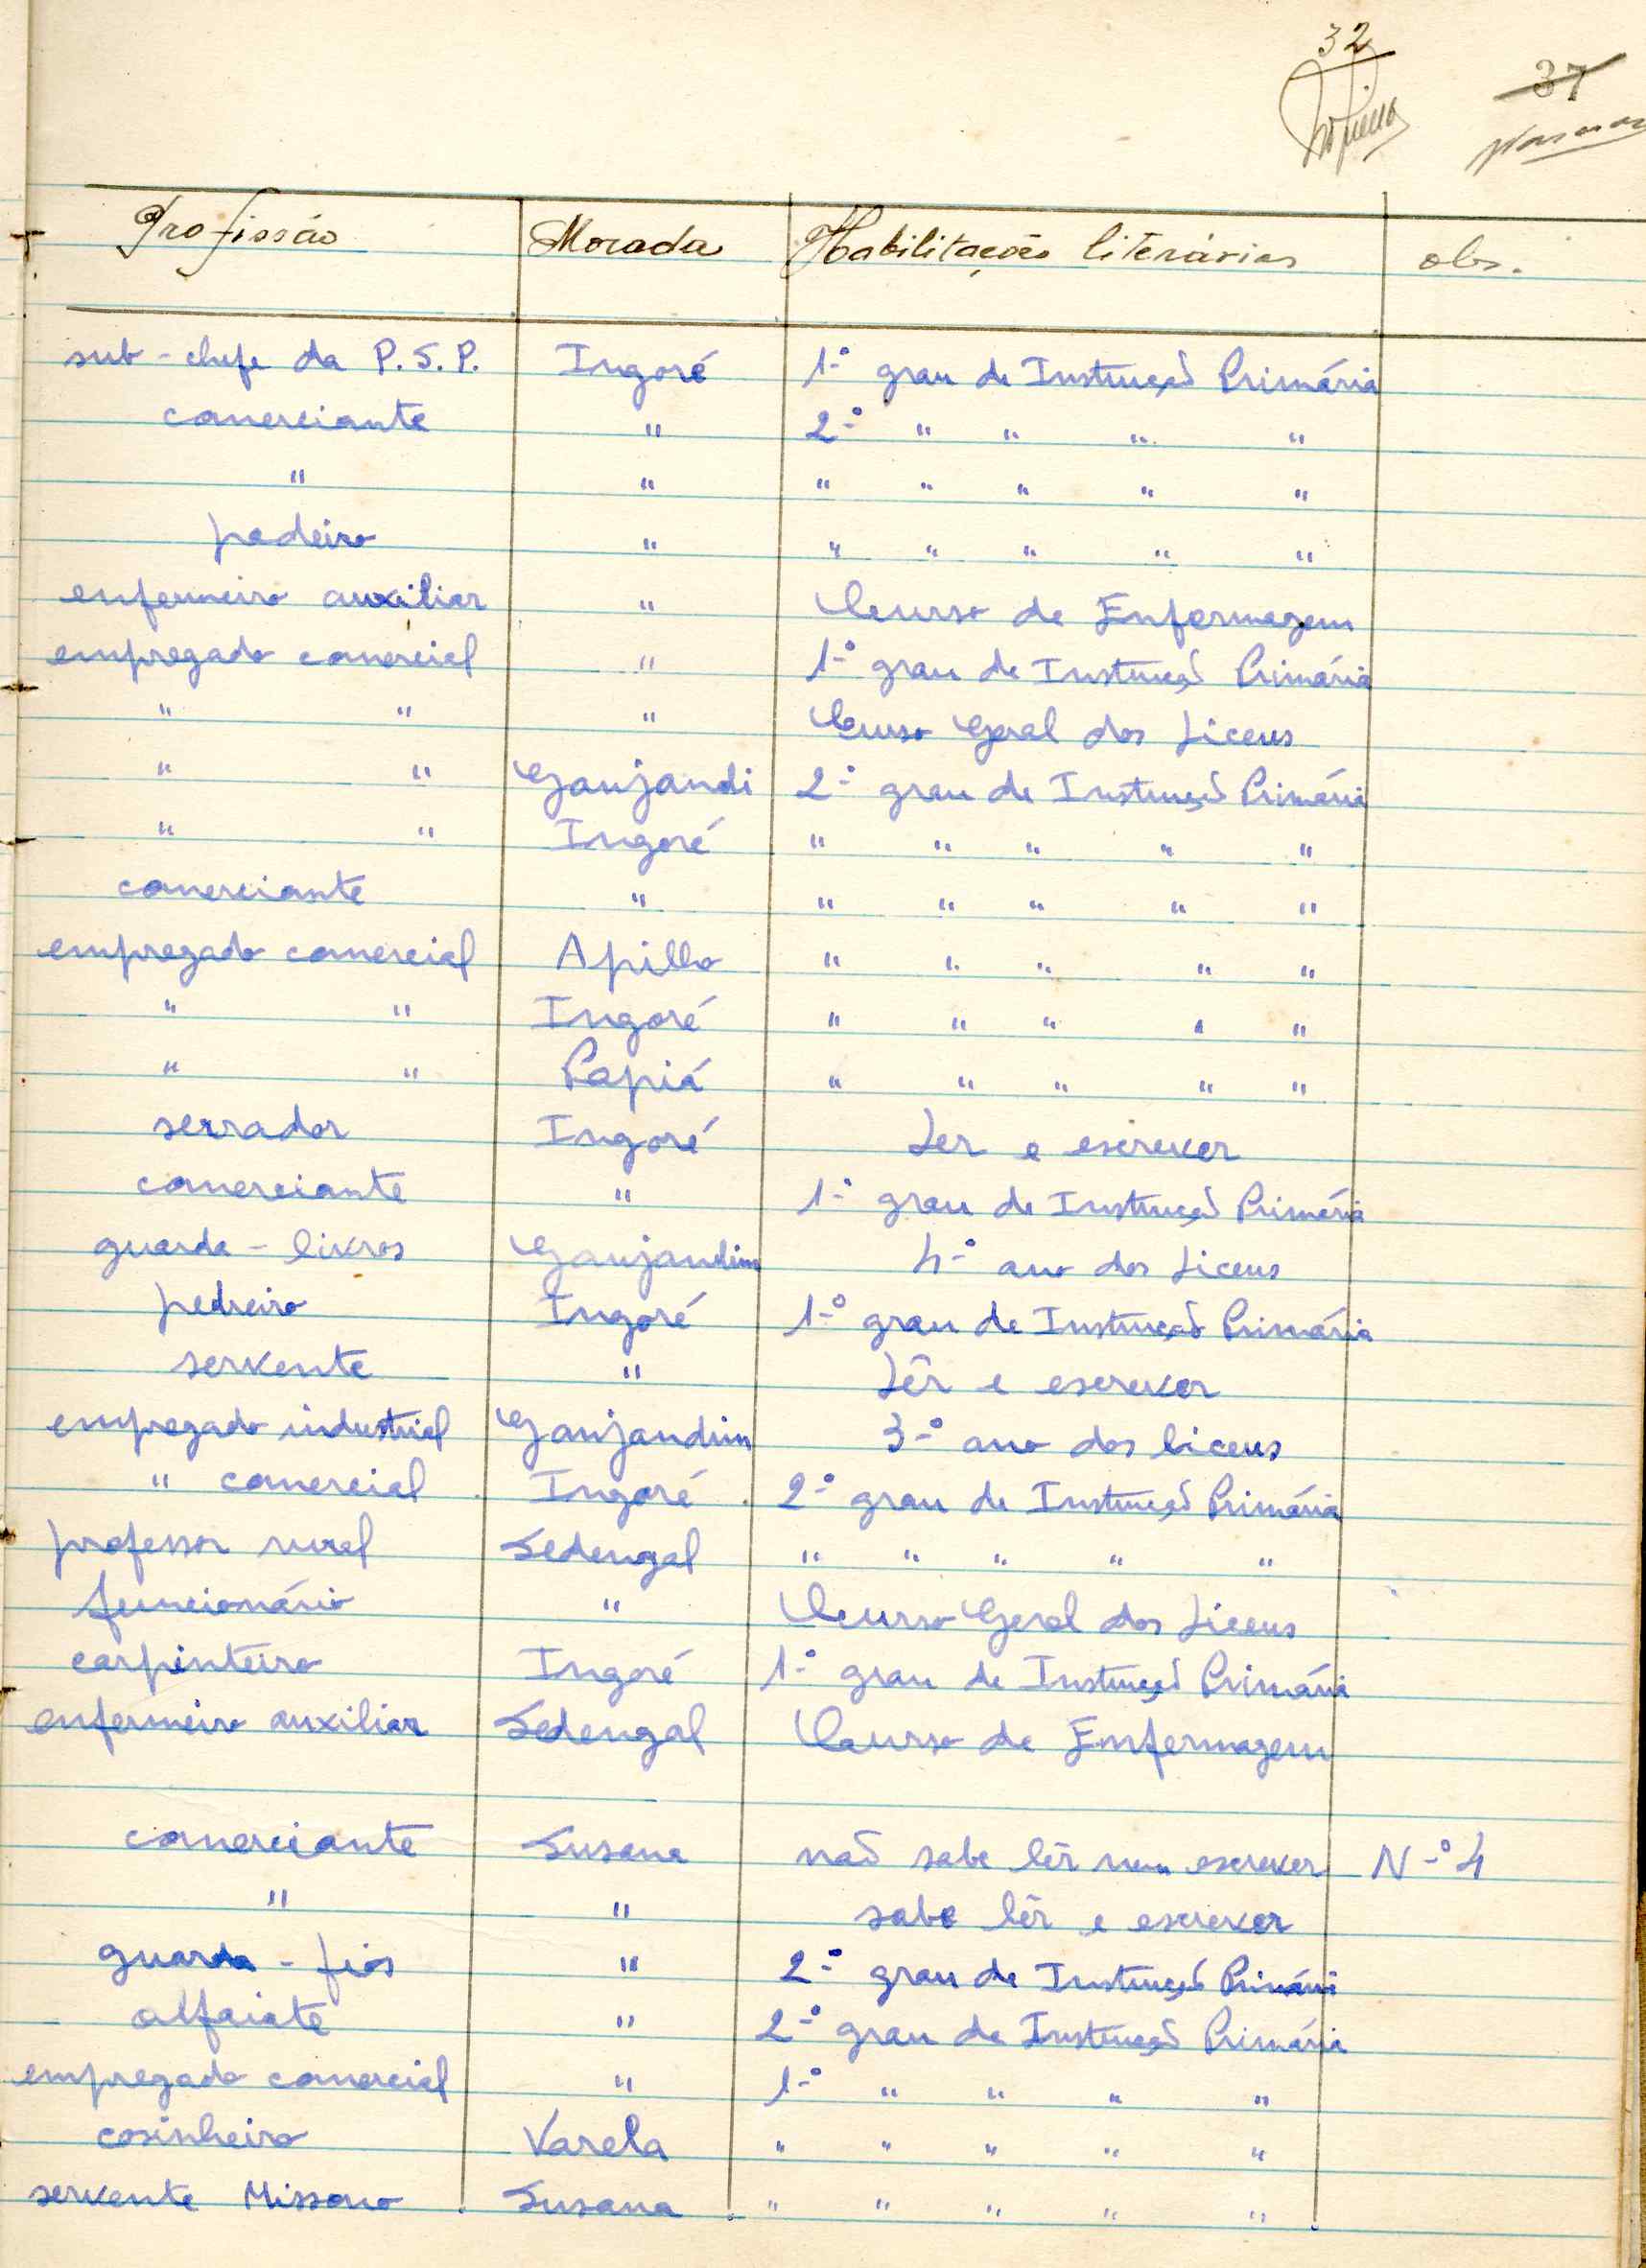 32
37
Profissão Morada Habilitações literárias obs.
sub-chefe da P.S.P. Ingoré 1.º grau de Instrução Primária
comerciante " 2.º " " " "
" " " " " " "
padeiro " " " " " "
enfermeiro auxiliar " Curso de Enfermagem
empregado comercial " 1.º grau de Instrução Primária
" " " Curso Geral dos Liceus
" " Ganjandi 2.º grau de Instrução Primária
" " Ingoré " " " " "
comerciante " " " " " "
empregado comercial Apilho " " " " "
" " Ingoré " " " " "
" " Papiá " " " " "
serrador Ingoré Ler e escrever
comerciante " 1.º grau de Instrução Primária
guarda-livros Ganjandim 4.º ano dos Liceus
pedreiro Ingoré 1.º grau de Instrução Primária
servente " Lêr e escrever
empregado industrial Ganjandim 3.º ano dos liceus
" comercial Ingoré 2.º grau de Instrução Primária
professor rural Sedengal " " " " "
funcionário " Curso Geral dos Liceus
carpinteiro Ingoré 1.º grau de Instrução Primária
enfermeiro auxiliar Sedengal Curso de Enfermagem
comerciante Susana não sabe lêr nem escrever N.º 4
" " sabe lêr e escrever
guarda-fios " 2.º grau de Instrução Primária
alfaiate " 2.º grau de Instrução Primária
empregado comercial " 1.º " " " "
cosinheiro Varela " " " " "
servente Missono Susana " " " " "